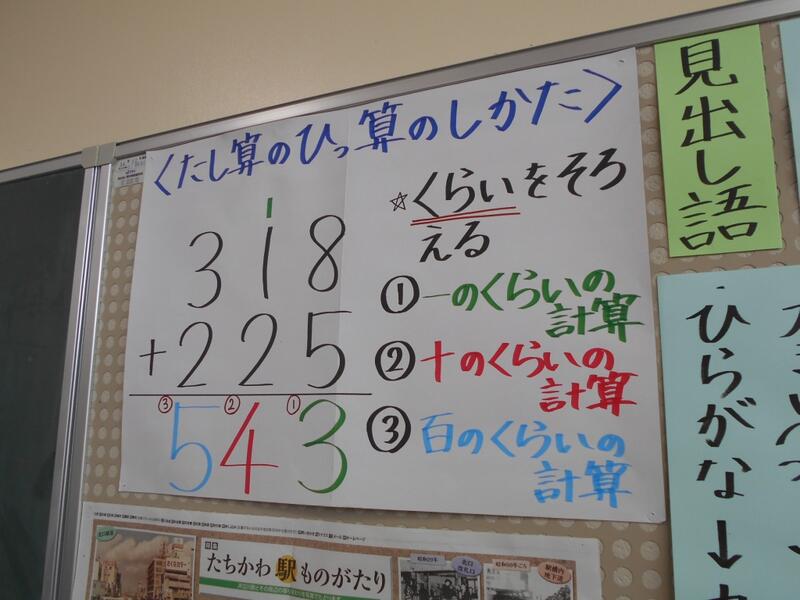 〈たし算のひっ算のしかた〉
1
318
+225
③5②4①3
☆くらいをそろ
える
①一のくらいの
計算
②十のくらいの
計算
③百のくらいの
計算
見出し語
・ひらがな→
特集
たちかわ駅ものがたり